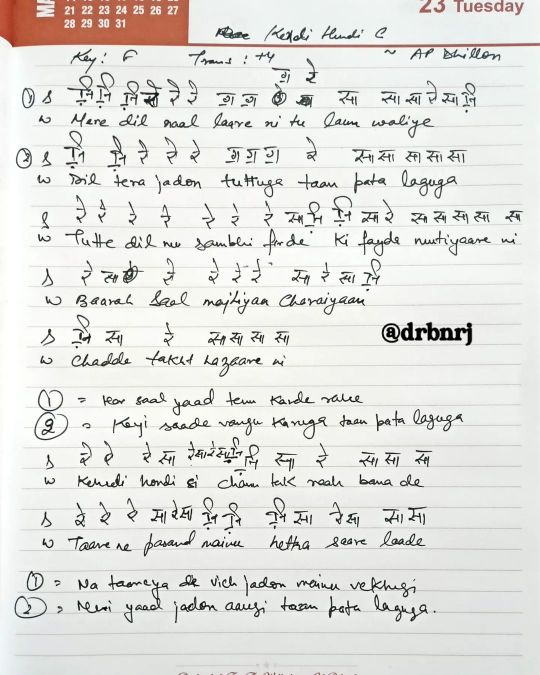 21 22 23 24 25 26 27
28 29 30 31
23 Tuesday
Kehdi Hundi C
~ AP Dhillon
Key: F Trans: +4
ग़ रे
① S नि नि नि रे रे ग़ ग़ सा सा सा रे सा नि
w Mere dil naal laare ni tu laun waliye
② S नि नि रे रे रे ग़ ग़ ग़ रे सा सा सा सा सा
w Dil tera jadon tuttuga taan pata laguga
S रे रे रे रे रे रे रे सा नि नि सा रे सा सा सा सा सा
w Tutte dil nu sambhi firde ki fayda mutiyaare ni
S रे सा रे रे रे रे सा रे सा नि
w Baarah Saal majhiyaa Charaiyaan
S नि सा रे सा सा सा सा
@drbnrj
w Chadde takht hazaare ni
① = Har saal yaad tenu karde rahe
② = Koyi saade vangu karuga taan pata laguga
S रे रे रे सा रे सा रे सा नि नि सा रे सा सा सा
w Kehndi hondi si chann tak raah bana de
S रे रे रे सा रे सा नि नि नि सा रे सा सा सा
w Taare ne pasand mainu hetha saare laade
① = Na taareya de vich jadon mainu vekhegi
② = Meri yaad jadon aaugi taan pata laguga.